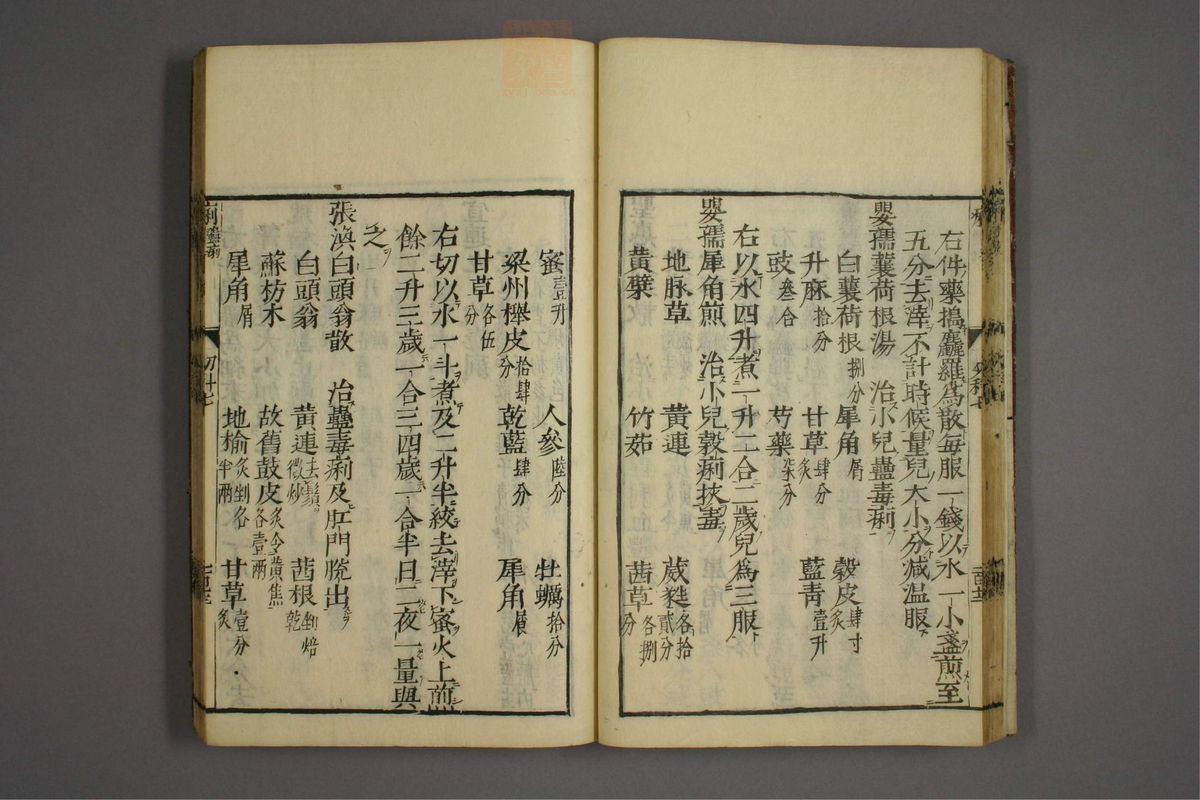 右件藥搗麤羅為散每服一錢以水一小盞煎至
五分去滓不計時候量兒大小分減温服
嬰孺蘘荷根湯 治小兒蠱毒痢
白蘘荷根捌分 犀角屑 榖皮肆寸炙
升麻拾分 甘草肆分炙 藍青壹升
豉叁合 芍藥柒分
右以水四升煮一升二合二歲兒為三服
嬰孺犀角煎 治小兒榖痢挾毒
地脉草 黄連 葳蕤各拾貳分
黄蘗 竹茹 茜草各捌分
蜜壹升 人參陸分 牡蠣拾分
梁州櫸皮拾肆分 乾藍肆分 犀角屑
甘草各伍分
右切以水一斗煮及二升半絞去滓下蜜火上煎
餘二升三歲一合三四歲一合半日二夜一量與
之
張渙白頭翁散 治蠱毒痢及肛門脱出
白頭翁 黄連去鬚微炒 茜根剉焙乾
蘇枋木 故舊鼓皮炙令黄焦各壹兩
犀角屑 地榆炙剉各半兩 甘草壹分炙